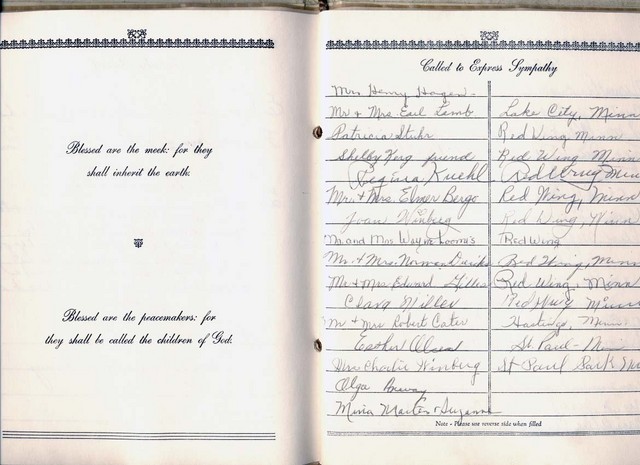 Blessed are the meek: for they
shall inherit the earth.
Blessed are the peacemakers: for
they shall be called the children of God.
Called to Express Sympathy
Mrs Henry Hagen
Mr & Mrs Earl Lamb Lake City, Minn
Patricia Stuhr Red Wing Minn
Shelby friend Red Wing Minn
Regina Kuehl Red Wing Minn
Mr. & Mrs. Elmer Berge Red Wing, Minn
Joan Winberg Red Wing, Minn
Mr. and Mrs. Wayne Loomis Red Wing
Mr. & Mrs. Norman Red Wing, Minn
Mr & Mrs Edward Red Wing, Minn
Clara Miller Red Wing Minn
Mr & Mrs Robert Cater Hastings, Minn.
Esther Olson St. Paul - Minn
Mrs Charlie Winberg St Paul Park
Olga
& Suzanne
Note - Please use reverse side when filled